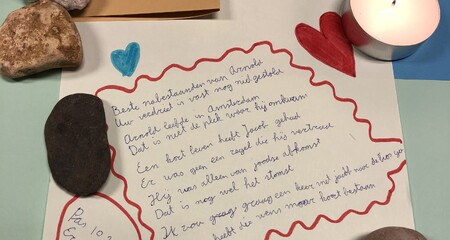 Beste nabestaanden van Arnold
Uw verdriet is vast nog niet gestold
Arnold leefde in Amsterdam
Dat is niet de plek waar hij omkwam
Een kort leven heeft Jacob gehad
Er was geen een regel die hij vertrad
Hij was alleen van joodse afkomst
Dat is nog wel het stomst
Ik zou graag graag een keer met jacht naar de
hebt der wens maar kort bestaan
Pas 10
Er